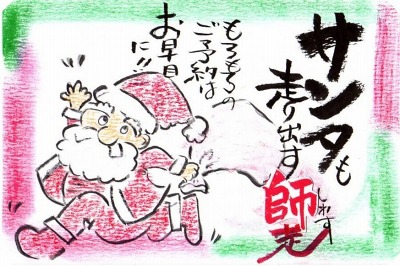 サンタも
走り出す
師走
しわす
もろもろの
ご予約は
お早目
に!!